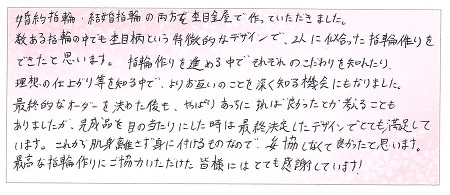 婚約指輪・結婚指輪の両方を杢目金屋で作っていただきました。
数ある指輪の中でも杢目柄という特徴的なデザインで、2人に似合った指輪作りを
できたと思います。指輪作りを進める中でそれぞれのこだわりを知れたり、
理想の仕上がり等を知る中で、よりお互いのことを深く知る機会にもなりました。
最終的なオーダーを決めた後も、やっぱりあっちにすれば良かったとか考えることも
ありましたが、完成品を目の当たりにした時は最終決定したデザインでとても満足して
います。これから肌身離さず身に付けるものなので、妥協しなくて良かったと思います。
最高な指輪作りにご協力いただけた皆様にはとても感謝しています!